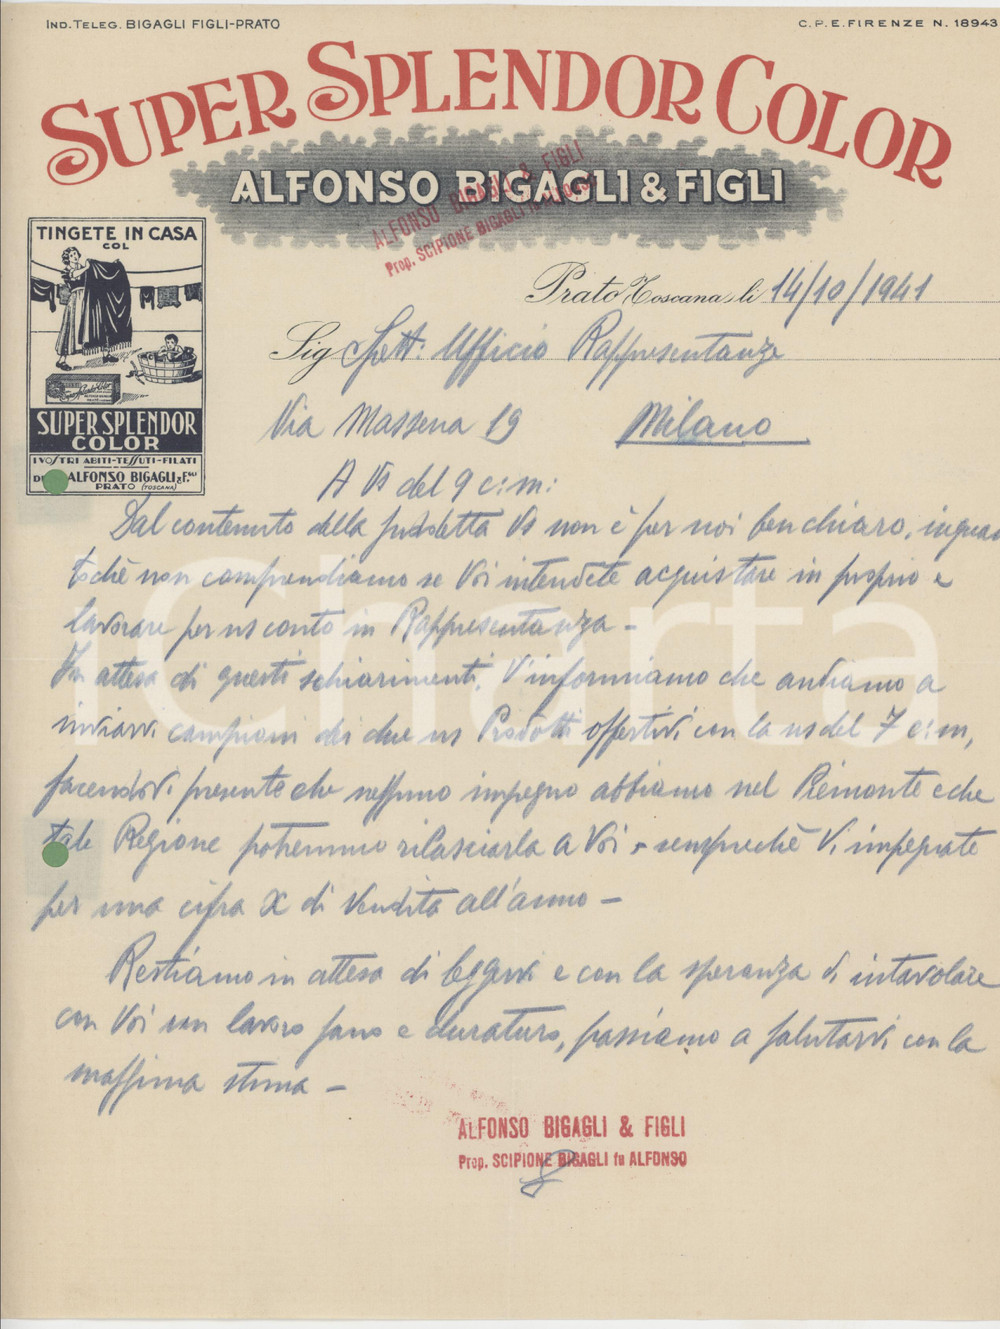 IND. TELEG. BIGAGLI FIGLI-PRATO
C.P.E. FIRENZE N. 18943
SUPER SPLENDOR COLOR
ALFONSO BIGAGLI & FIGLI
ALFONSO BIGAGLI & FIGLI
Prop. SCIPIONE BIGAGLI fu ALFONSO
TINGETE IN CASA
COL
SUPER SPLENDOR
COLOR
I VOSTRI ABITI-TESSUTI-FILATI
DI ALFONSO BIGAGLI & F.GLI
PRATO (TOSCANA)
Prato Toscana, li 14/10/1941
Sig Spett. Ufficio Rappresentanze
Via Massena 19 Milano
A Vs del 9 c.m.
Dal contenuto della predetta Vs non è per noi ben chiaro, inquan
tochè non comprendiamo se Voi intendete acquistare in proprio e
lavorare per ns conto in Rappresentanza -
In attesa di questi schiarimenti, V'informiamo che andiamo a
inviarvi campioni dei due ns Prodotti offertivi con la ns del 7 c.m,
facendovi presente che nessuno impegno abbiamo nel Piemonte e che
tale Regione potremmo rilasciarla a Voi - sempreché Vi impegnate
per una cifra X di vendita all'anno -
Restiamo in attesa di leggervi e con la speranza di intavolare
con Voi un lavoro sano e duraturo, passiamo a salutarvi con la
massima stima -
ALFONSO BIGAGLI & FIGLI
Prop. SCIPIONE BIGAGLI fu ALFONSO
iCharta